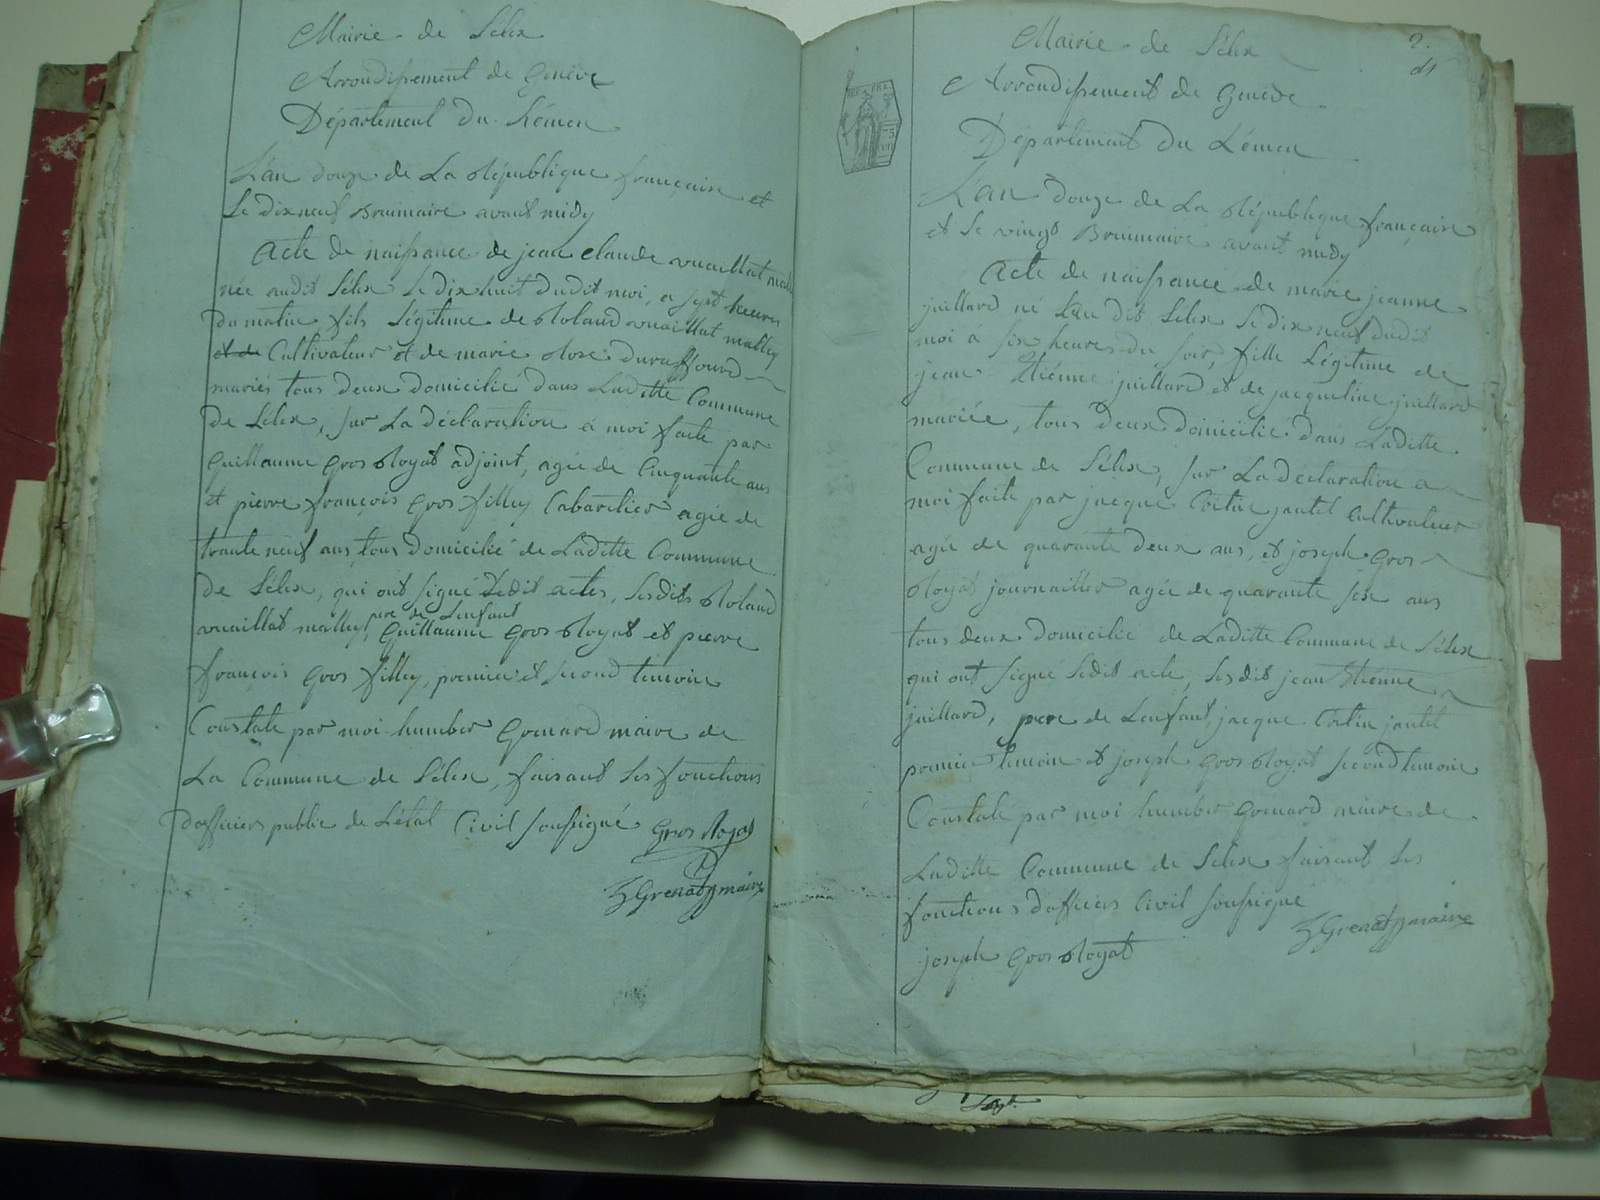 Mairie de Lélex
Arrondissement de Genève
Département du Léman
L'an douze de La République française et
Le dixneuf Brumaire avant midy
Acte de naissance de jean Claude vuaillat mall
née audit Lélex Le dix huit dudit moi, a sept heures
du matin fils Légitime de Roland vuaillat malley
et de Cultivateur et de marie Rose Duraffourd
mariés tous deux domicilié dans Laditte Commune
De Lélex, sur La déclaration a moi faite par
Guillaume Gros Royat adjoint, agée de Cinquante ans
et pierre françois Gros filley Cabaretier agée de
trante neuf ans, tous domicilié de Laditte Commune
De Lélex, qui ont signé Ledit actes, Lesdits Roland
vuaillat malley, pere de Lenfant Guillaume Gros Royat et pierre
françois Gros filley, premier et second temoin
Constaté par moi humber Grenard maire de
La Commune de Lélex, faisant Les fonctions
Dofficiers public de Létat Civil soussigné Gros Royat
maire
2.
Mairie de Lélex
Arrondissement de Genève
Département du Léman
L'an douze de La République française
et Le vingt Brumaire avant midy
Acte de naissance de marie jeanne
juillard né Laudit Lélex Le dix neuf dudit
moi à six heures du soir, fille Légitime de
jean Etiénne juillard et de jacqueline juillard
mariée, tous deux domicilié dans Laditte
Commune de Lélex, sur La déclaration a
moi faite par jacque jantet Cultivateur
agée de quarante deux ans, et joseph Gros
Royat journaillier agée de quarante six ans
tous deux domicilié de Laditte Commune de Lélex
qui ont signé Ledit acte, Lesdit jean Etiénne
juillard, pere de Lenfant, jacque jantet
premier temoin et joseph Gros Royat second temoin
Constaté par moi humber Grenard maire de
Laditte Commune de Lélex faisant Les
fonctions dofficiers Civil soussigné
maire
joseph Gros Royat